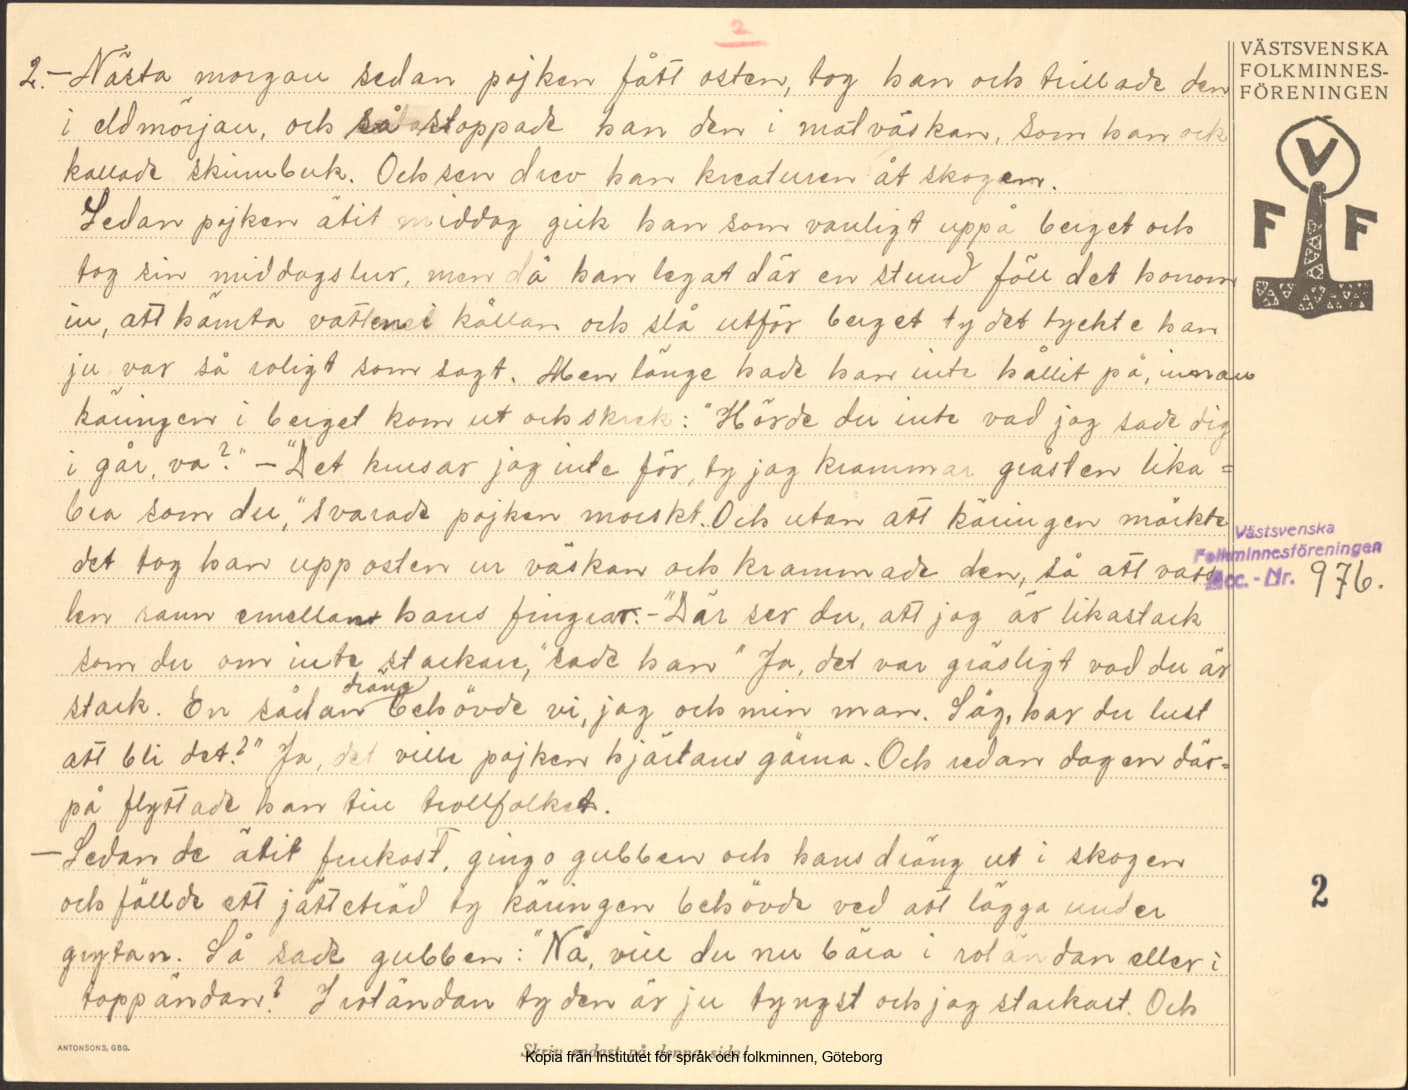 2
VÄSTSVENSKA
FOLKMINNES-
FÖRENINGEN
V
F F
2.-Nästa morgon sedan pojken fått osten, tog han och trillade den
i eldmörjan, och så stoppade han den i matväskan, som han ock
kallade skinnbuk. Och sen drev han kreaturen åt skogen.
Sedan pojken ätit middag gick han som vanligt uppå berget och
tog sin middagslur, men då han legat där en stund föll det honom
in, att hämta vatten i källan och slå utför berget ty det tyckte han
ju var så roligt som sagt. Men länge hade han inte hållit på, innan
käringen i berget kom ut och skrek: "Hörde du inte vad jag sade dig
i går, va?" - "Det krusar jag inte för, ty jag krammar gråsten lika=
bra som du," svarade pojken morskt. Och utan att käringen märkte
det tog han upp osten ur väskan och krammade den, så att vass
len rann emellan hans fingrar. - "Där ser du, att jag är likastark
som du om inte starkare," sade han "Ja, det var gräsligt vad du är
stark. En sådan dräng behövde vi, jag och min man. Säg, har du lust
att bli det?" Ja, det ville pojken hjärtans gärna. Och redan dagen där=
på flyttade han till trollfolket.
-Sedan de ätit frukost, gingo gubben och hans dräng ut i skogen
och fällde ett jätteträd ty käringen behövde ved att lägga under
grytan. Så sade gubben: "Nå, vill du nu bära i rotändan eller i
toppändan? I rotändan ty den är ju tyngst och jag starkast. Och
Västsvenska
Folkminnesföreningen
Acc.-Nr. 976.
2
ANTONSONS, GBG.
Skriv endast på denna sida!
Kopia från Institutet för språk och folkminnen, Göteborg